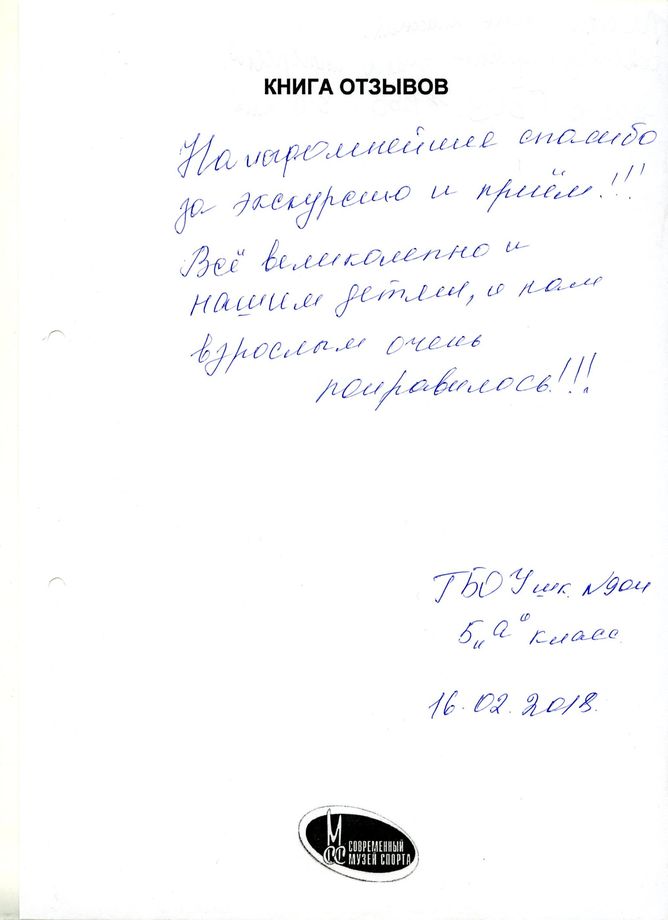 КНИГА ОТЗЫВОВ
Наиогромнейшее спасибо
за экскурсию и приём!!!
Всё великолепно и
нашим детям, и нам
взрослым очень
понравилось!!!
ГБОУ шк. №904
5 „А" класс.
16.02.2018.
М
СС
СОВРЕМЕННЫЙ
МУЗЕЙ СПОРТА